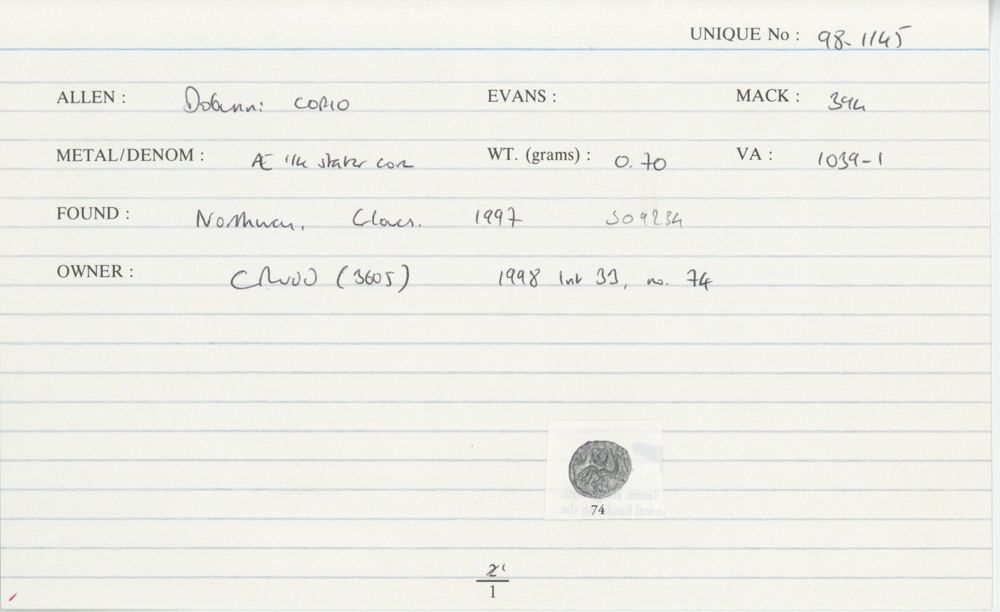 UNIQUE No : 98-1145
ALLEN : Dobunni CORIO EVANS : MACK : 394
METAL/DENOM : Æ 1/4 stater core WT. (grams) : 0.70 VA : 1039-1
FOUND : Northway, Glos. 1997 SO9234
OWNER : (3605) 1998 list 33, no. 74
74
1